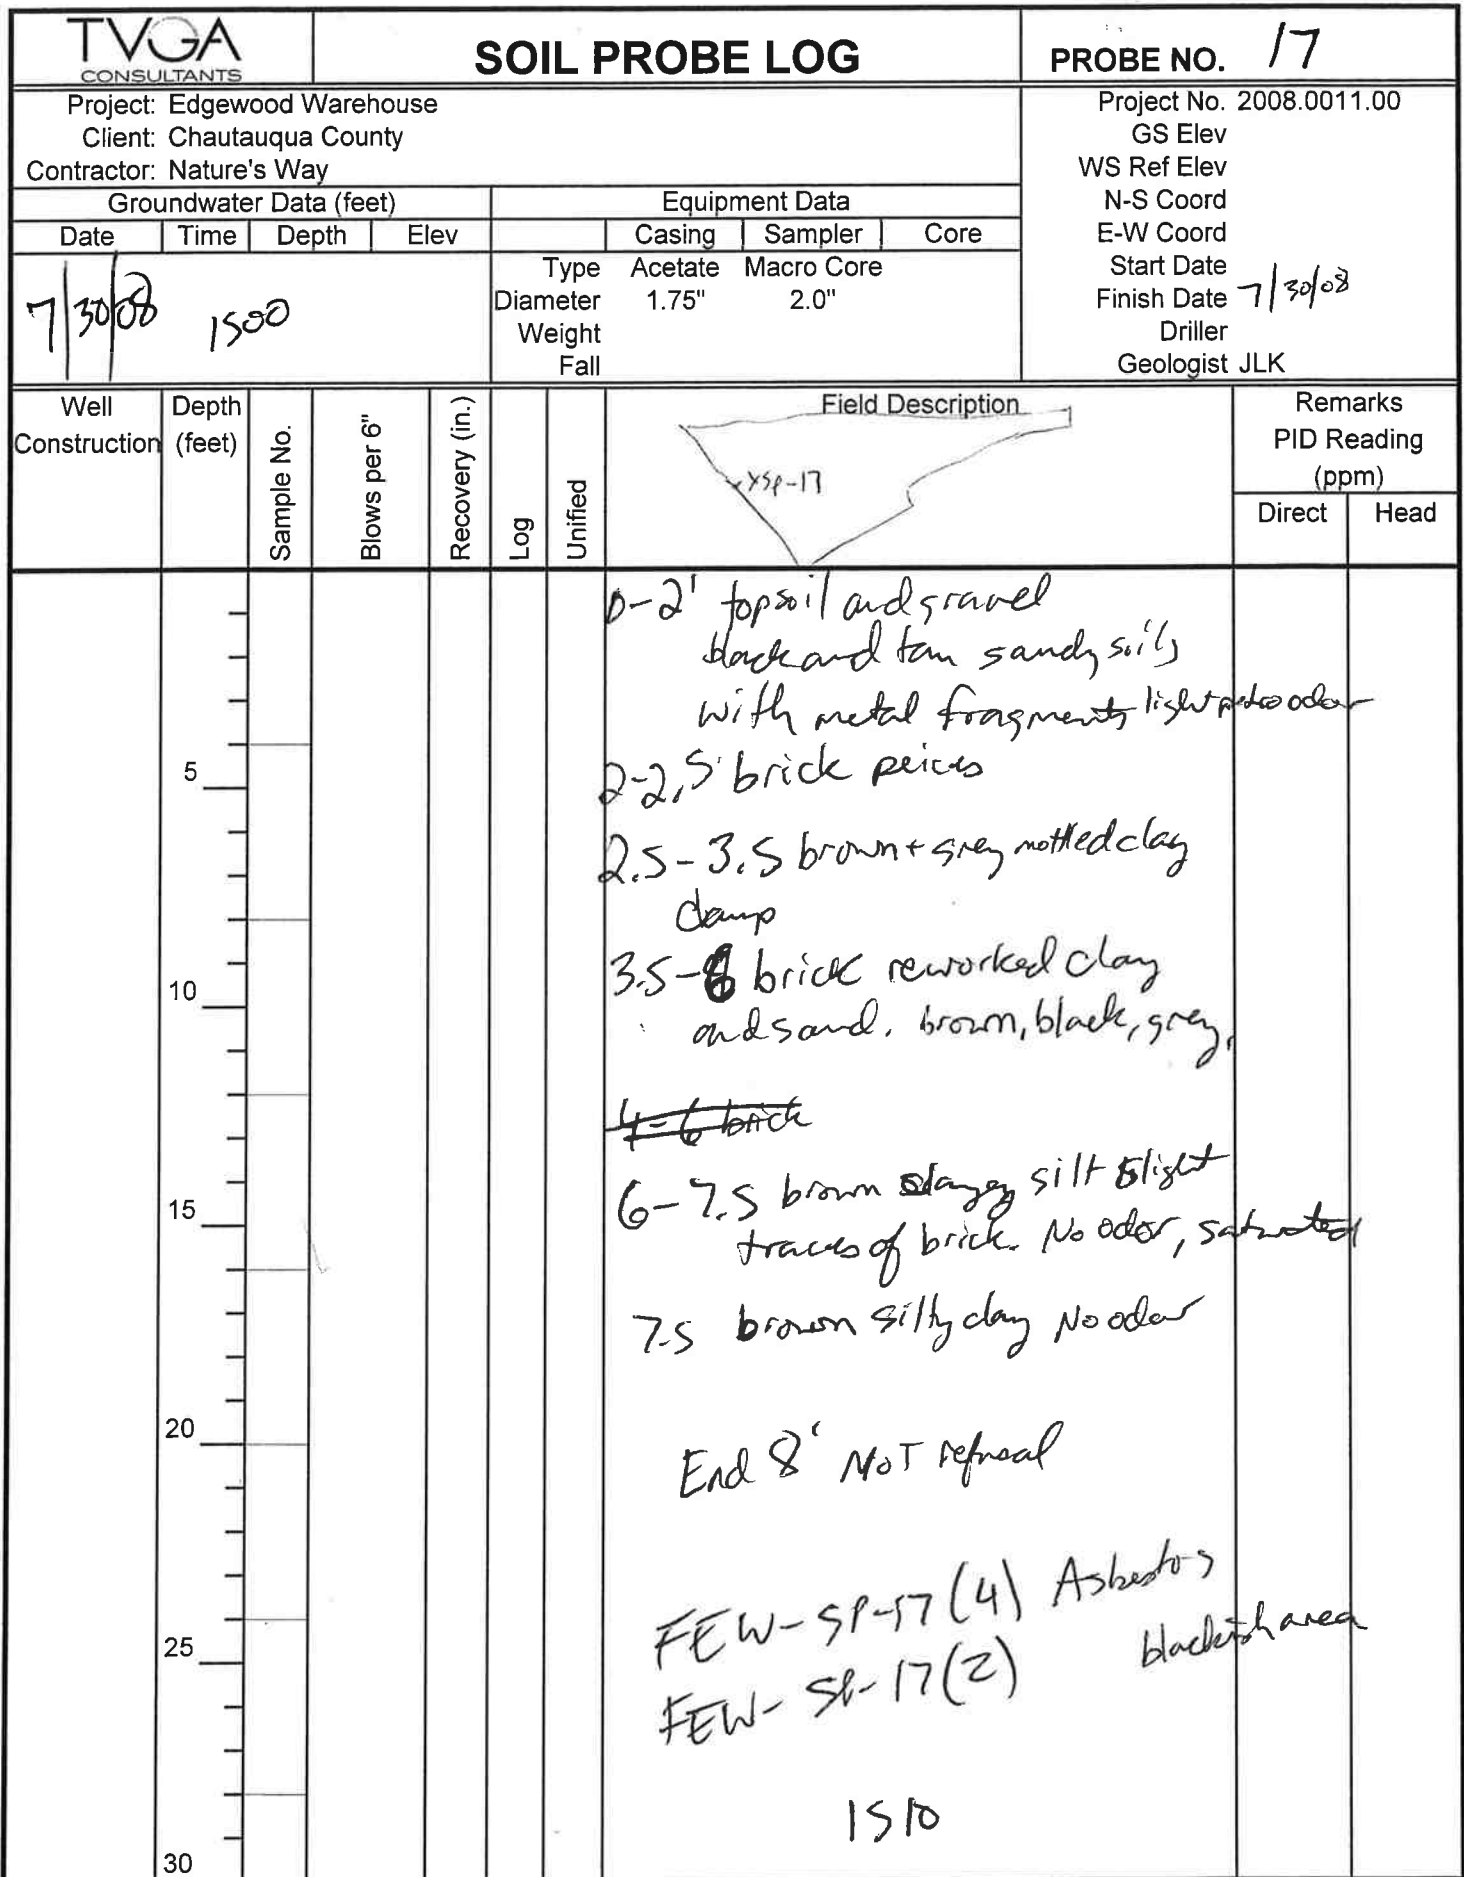 TVGA
CONSULTANTS
SOIL PROBE LOG
PROBE NO. 17
Project: Edgewood Warehouse
Client: Chautauqua County
Contractor: Nature's Way
Project No. 2008.0011.00
GS Elev
WS Ref Elev
N-S Coord
E-W Coord
Start Date
Finish Date 7/30/08
Driller
Geologist JLK
Groundwater Data (feet)
Equipment Data
Date Time Depth Elev
Casing Sampler Core
7/30/08 1500
Type Acetate Macro Core
Diameter 1.75" 2.0"
Weight
Fall
Well Construction
Depth (feet)
Sample No.
Blows per 6"
Recovery (in.)
Log
Unified
Field Description
Remarks
PID Reading
(ppm)
Direct Head
XSP-17
0-2' topsoil and gravel
black and tan sandy soils
with metal fragments light petro odor
5
2-2.5' brick peices
2.5-3.5 brown + grey mottled clay
damp
3.5-6 brick reworked clay
10
and sand. brown, black, grey,
4-6 brick
6-7.5 brown clayey silt slight
15
traces of brick. No odor, saturated
7.5 brown silty clay No odor
20
End 8' NOT refusal
FEW-SP-17 (4) Asbestos
25
blackish area
FEW-SP-17 (2)
1510
30